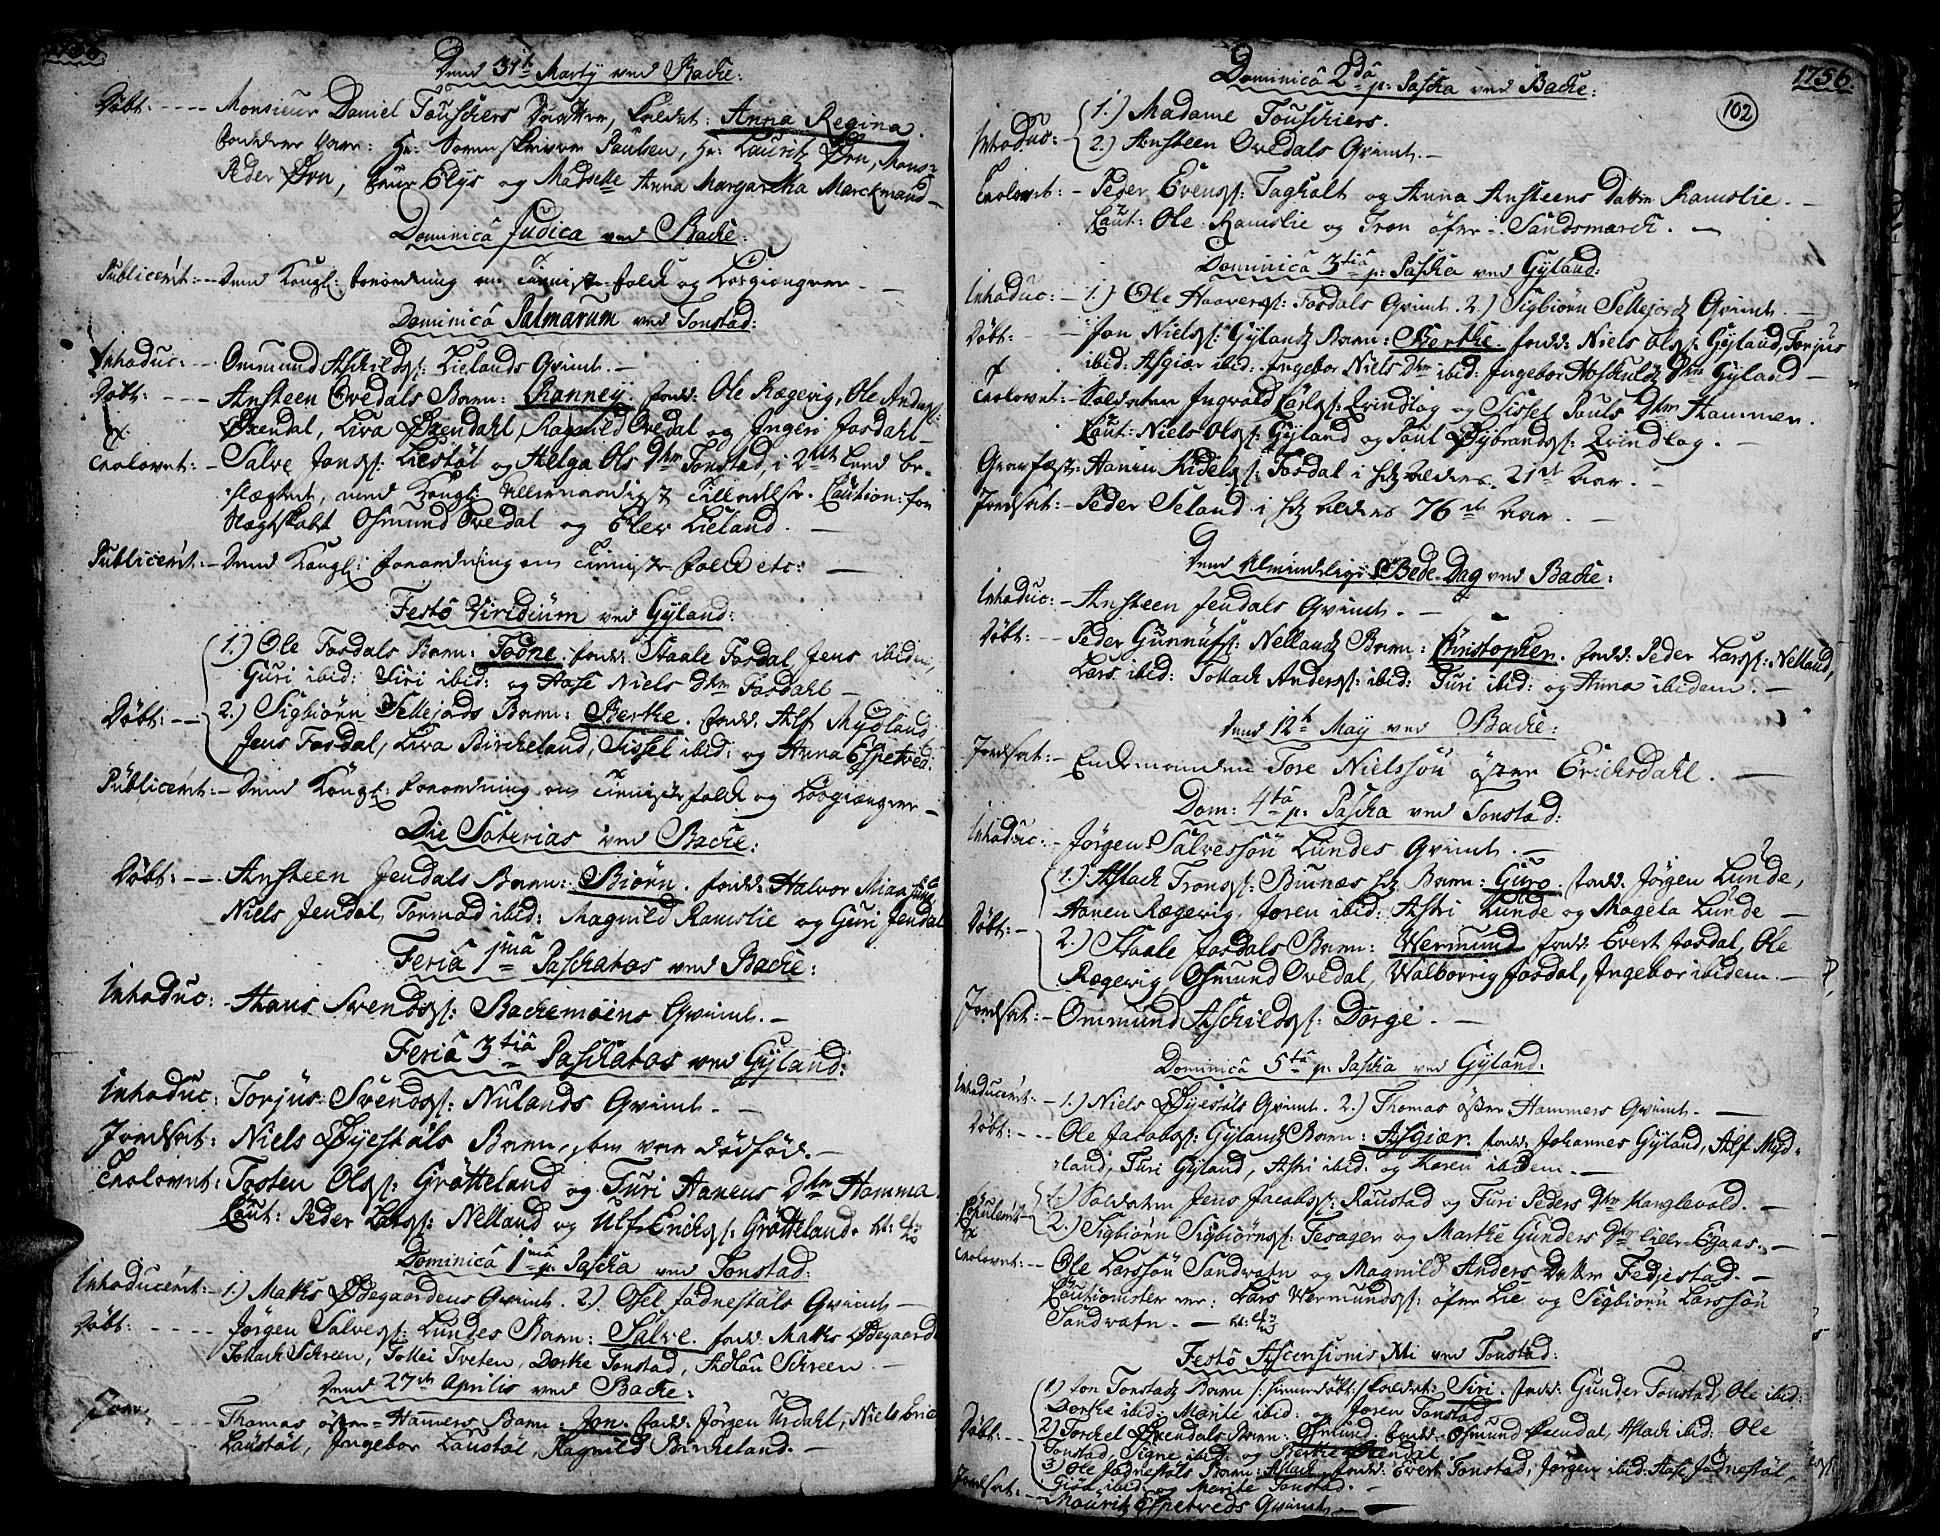 1756
Dend 31te Martij ved Backe:
Döbt: ---- Monsieur Daniel Touschers Daatter, kaldet: Anna Regina.
Fadderne vare: Hr: Sorenskriver Paulsen, Hr: Lauritz Örn, Mons:
Peder Örn, Frue Elys og Madselle Anna Margaretha Marckmand —
Dominicâ Judica ved Backe:
Publicerit: -- Dend Kongl: forordning om Tienniste-folck og Løsgiengere —
Dominicâ Palmarum ved Tonstad:
Introduc: -- Ommund Aschilds: Lielands Qvinde. —
Döbt: ---- Ansteen Ovedals Barn: Ranney. fadd: Ole Rægevig, Ole Anders:
Øxendal, Liva Øxendahl, Ragnild Ovedal og Ingeri Josdahl —
Trolovet: - Salve Jons: Liestöl og Helga Ols Dtr Tonstad, i 2det Leed be-
slægtet, med Kongl: Allernaadigst Tilladelse. Caution: for
Slegtskabt Osmund Ovedal og Elev Lieland. —
Publicerit: - Dend Kongl: forordning om Tienniste folck etc: —
Festô Viridium ved Gyland:
1.) Ole Fosdals Barn: Todne. fadd: Staale Fosdal, Jens ibidem,
Guri ibid: Siri ibid: og Aase Niels Dtr Fosdahl —
Döbt: -- 2.) Sigbiörn Sellejods Barn: Berthe. fadd: Alf Mydland,
Jens Fosdal, Liva Bircheland, Sissel ibid: og Anna Espetvedt.
Publicerit: - Dend Kongl: forordning om Tienniste folck og Løsgiengere —
Die Soterias ved Backe:
Döbt: --- Ansteen Jendals Barn: Biörn. fadd: Halvor
Niels Jendal, Tormod ibid: Magnild Ramslie og Guri Jendal
Feriâ 1mâ Paschatos ved Backe:
Introduc: - Hans Svends: Backemoens Qvinde. —
Feriâ 3tiâ Paschatos ved Gyland:
Introduc: Torjus Svends: Nulands Qvinde. —
Jordsat: Niels Øyestöls Barn, som var dödföd. —
Trolovet: Tosten Ols: Grötteland og Turi Hanens Dtr Hamma.
Caut: Peder Lars: Nelland og Ulf Erichs: Grötteland.
Dominicâ 1mâ p: Pascha ved Tonstad:
Introducerit: - 1.) Mathis Ödegaardens Qvinde. 2.) Osel Jödnestöls Qvinde —
Döbt: ---- Jörgen Salves: Lundes Barn: Salve. fadd: Mathis Ödegaard
Tollach Schreen, Tollei Tveten, Dorthe Tonstad, Adlau Schreen —
Dend 27de Aprilis ved Backe:
---- Thomas östre Hamers Barn: Jon. fadd: Jörgen Urdahl, Niels Eric
Laustöl, Ingebor Laustöl, Ragnild Bircheland. —
1756.
102
Dominicâ 2dâ p: Pascha ved Backe:
Introduc: 1.) Madame Touschiers.
2.) Ansteen Ovedals Qvinde. —
Trolovet: - Peder Evens: Taghalt og Anna Ansteens Datter Ramslie. —
Caut: Ole Ramslie og Tron öfre Sandsmarck. —
Dominicâ 3tiâ p: Pascha ved Gyland:
Introduc: - 1.) Ole Haavers: Fosdals Qvinde. 2.) Sigbiörn Sellejods Qvinde. —
Döbt: -- Jon Niels: Gylands Barn: Berthe. fadd: Niels Ols: Gyland, Torjus
ibid: Asgiær ibid: Ingebor Niels Dtr ibid: Ingebor Aschulds Dtr Gyland —
Trolovet: - Soldaten Ingvold Carls: Qvindlog og Sissel Pouls Dtr Hammer.
Caut: Niels Ols: Gyland og Poul Sybrands: Qvindlog. —
Graufæst: Hanen Kidels: Fosdal i sit alders 21de Aar. —
Jordsat: - Peder Seland i sit alders 76de Aar. —
Dend Almindelige Bede-Dag ved Backe:
Introduc: - Ansteen Jendals Qvinde. —
Döbt: -- Peder Gunnufs: Nellands Barn: Christopher. fadd: Peder Lars: Nelland,
Lars ibid: Tollach Anders: ibid: Turi ibid: og Anna ibidem. —
Dend 12te May ved Backe:
Jordsat: - Enckemanden Tore Nielssön östre Ericksdahl. —
Dom: 4tâ p: Pascha ved Tonstad:
Introduc: - Jörgen Salvessön Lundes Qvinde. —
1.) Aslach Trons: Buenæs Barn: Guro. fadd: Jörgen Lunde,
Hanen Rægevig, Joren ibid: Astri Lunde og Mageta Lunde —
Döbt: - 2.) Staale Josdals Barn: Wermund. fadd: Evert Josdal, Ole
Rægevig, Osmund Ovedal, Walborrig Josdal, Ingebor ibidem. —
Jordsat: - Ommund Aschilds: Dorge. —
Dominicâ 5tâ p: Pascha ved Gyland:
Introducerit: - 1.) Niels Øyestöls Qvinde. 2.) Thomas östre Hammers Qvinde. —
Döbt: --- Ole Jacobs: Gylands Barn: Asgiær. fadd: Johannes Gyland, Alf Myd-
land, Turi Gyland, Astri ibid: og Karen ibidem. —
Copulerit 1.) Soldaten Jens Jacobs: Raustad og Turi Peders Dtr Hanglevold. —
2.) Sigbiörn Sigbiörns: Tesager og Marthe Gunders Dtr lille-Egaas. —
Trolovet: -- Ole Larssön Sandvatn og Magnild Anders Datter Fedjestad. —
Cautionister er: Lars Wermunds: öfre Lie og Sigbiörn Larssön
Sandvatn. —
Festô Ascensionis Xti ved Tonstad:
1.) Jon Tonstads Barn /: hiemmedöbt :/ kaldet: Siri. fadd: Gunder Tonstad, Ole ibid:
Dorthe ibid: Marite ibid: og Joren Tonstad
Döbt: -- 2.) Torchel Øxendals Barn: Osmund. fadd: Osmund Øxendal, Aslach ibid: Ole
Tonstad, Signe ibid: og Berthe Øxendal
3.) Ole Jödnestöls Barn: Aslach. fadd: Evert Tonstad, Jörgen ibid: Aase Jödnestöl
ibid: og Marite Tonstad. —
Jordsat: -- Mauritz Espetveds Qvinde. —